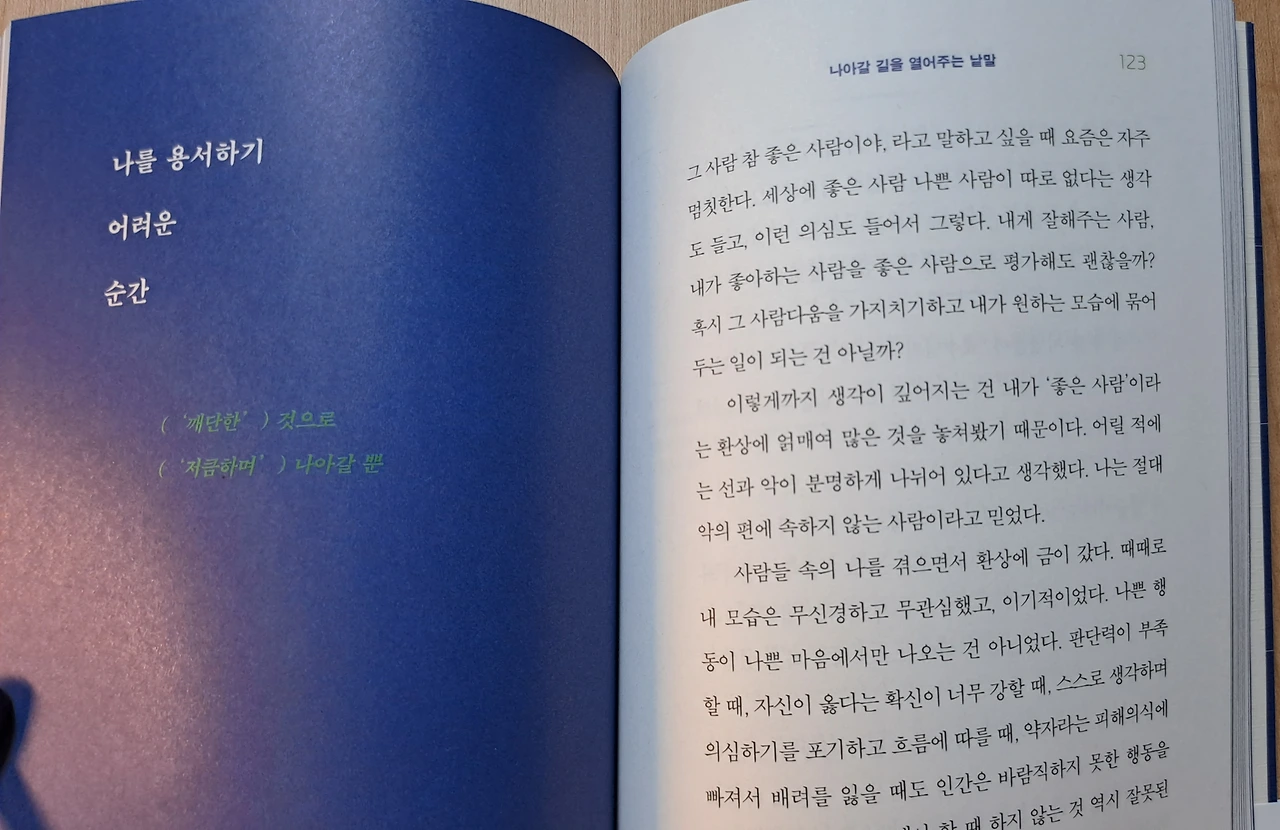 나를 용서하기
어려운
순간
( ‘깨단한’ ) 것으로
( ‘저큼하며’ ) 나아갈 뿐
나아갈 길을 열어주는 낱말
123
그 사람 참 좋은 사람이야, 라고 말하고 싶을 때 요즘은 자주
멈칫한다. 세상에 좋은 사람 나쁜 사람이 따로 없다는 생각
도 들고, 이런 의심도 들어서 그렇다. 내게 잘해주는 사람,
내가 좋아하는 사람을 좋은 사람으로 평가해도 괜찮을까?
혹시 그 사람다움을 가지치기하고 내가 원하는 모습에 묶어
두는 일이 되는 건 아닐까?
이렇게까지 생각이 깊어지는 건 내가 ‘좋은 사람’이라
는 환상에 얽매여 많은 것을 놓쳐봤기 때문이다. 어릴 적에
는 선과 악이 분명하게 나뉘어 있다고 생각했다. 나는 절대
악의 편에 속하지 않는 사람이라고 믿었다.
사람들 속의 나를 겪으면서 환상에 금이 갔다. 때때로
내 모습은 무신경하고 무관심했고, 이기적이었다. 나쁜 행
동이 나쁜 마음에서만 나오는 건 아니었다. 판단력이 부족
할 때, 자신이 옳다는 확신이 너무 강할 때, 스스로 생각하며
의심하기를 포기하고 흐름에 따를 때, 약자라는 피해의식에
빠져서 배려를 잃을 때도 인간은 바람직하지 못한 행동을
할 때 하지 않는 것 역시 잘못된